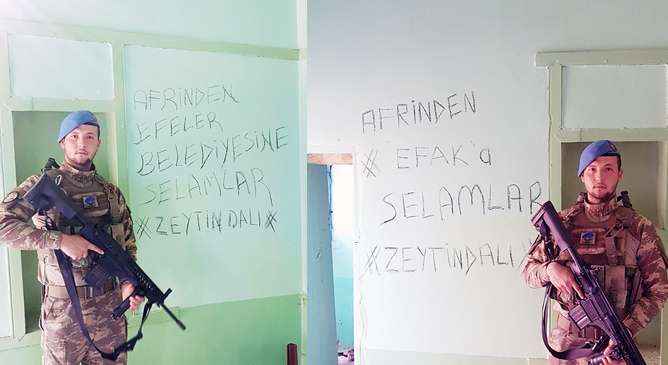 AFRİNDEN
EFELER
BELEDİYESİNE
SELAMLAR
#ZEYTİNDALI#
AFRİNDEN
# EFAK'a
SELAMLAR
#ZEYTİNDALI